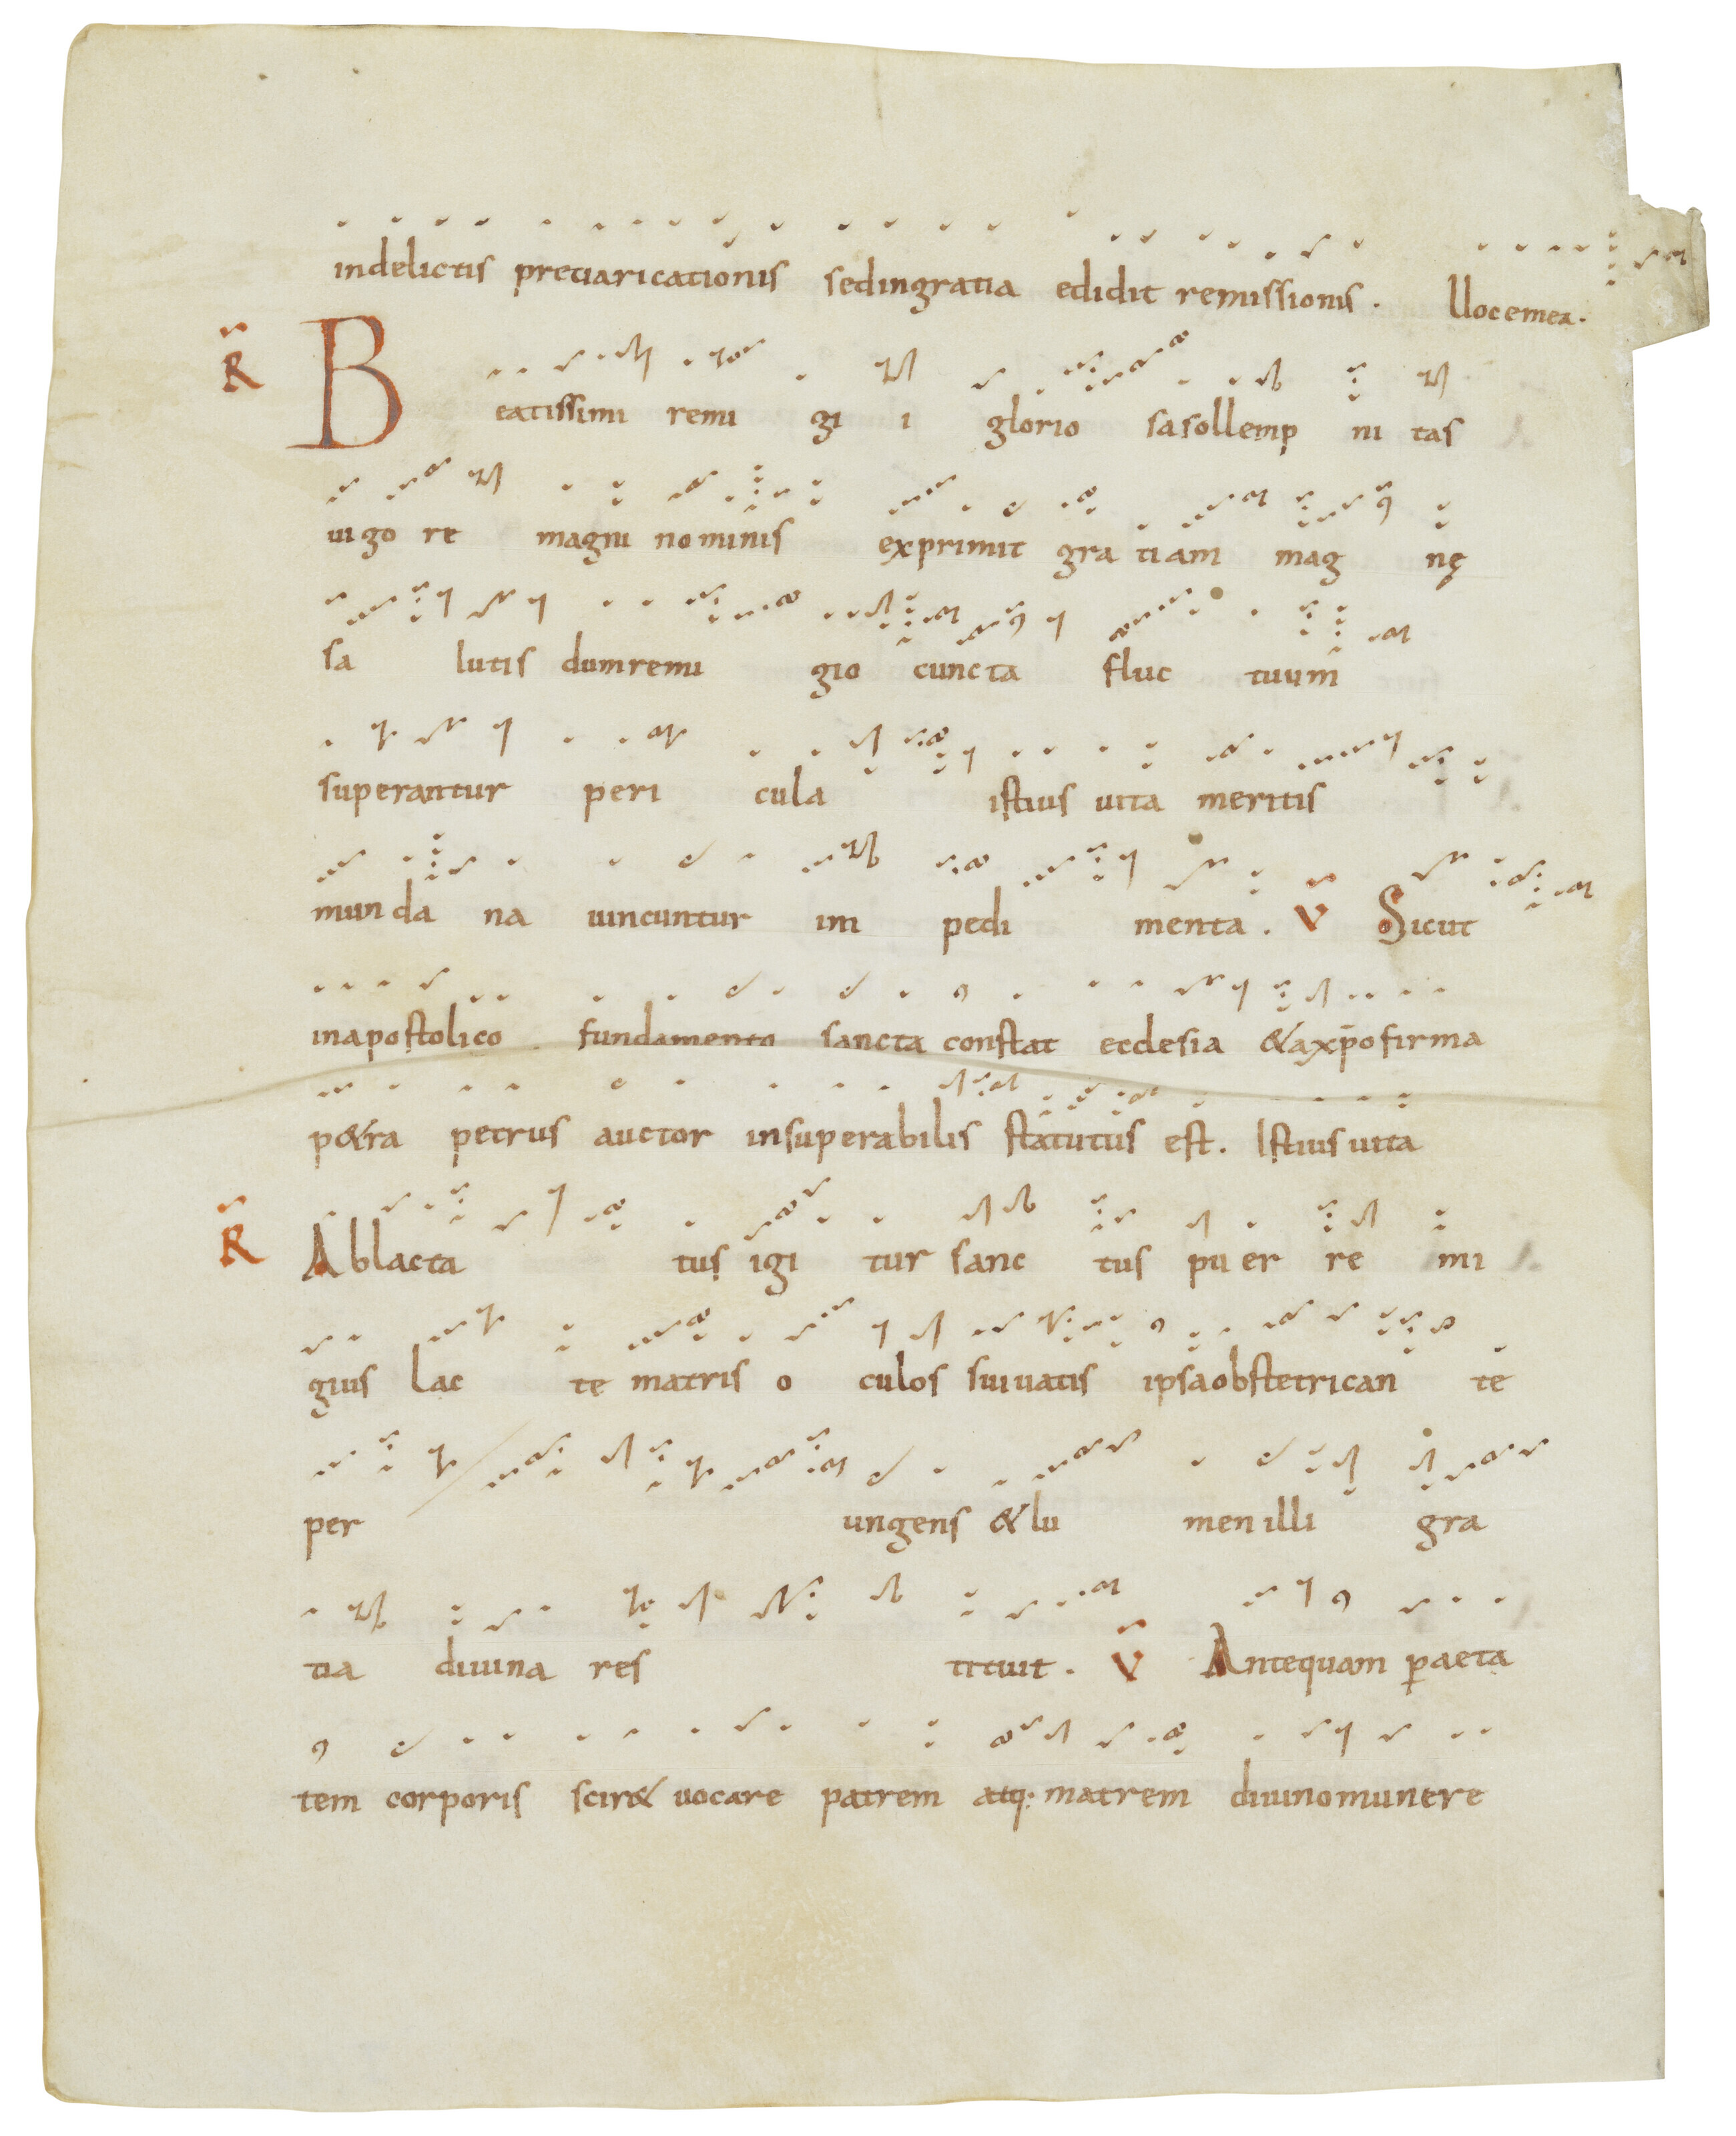 indelictis preuaricationis sedingratia edidit remissionis. llocemea.
R Beatissimi remi gi i glorio sasollemp ni tas
uigo re magni nominis exprimit gra tiam mag nę
sa lutis dumremi gio cuncta fluc tuum
superantur peri cula istius uita meritis
mun da na uincuntur im pedi menta. V Sicut
inapostolico fundamento sancta constat ecclesia &axp̄ofirma
p&ra petrus auctor insuperabilis statutus est. Istius uita
R Ablacta tus igi tur sanc tus pu er re mi
gius lac te matris o culos sui uatis ipsaobstetrican te
per ungens &lu men illi gra
tia diuina res tituit. V Antequam p̱aeta
tem corporis scir& uocare patrem atq: matrem diuinomunere